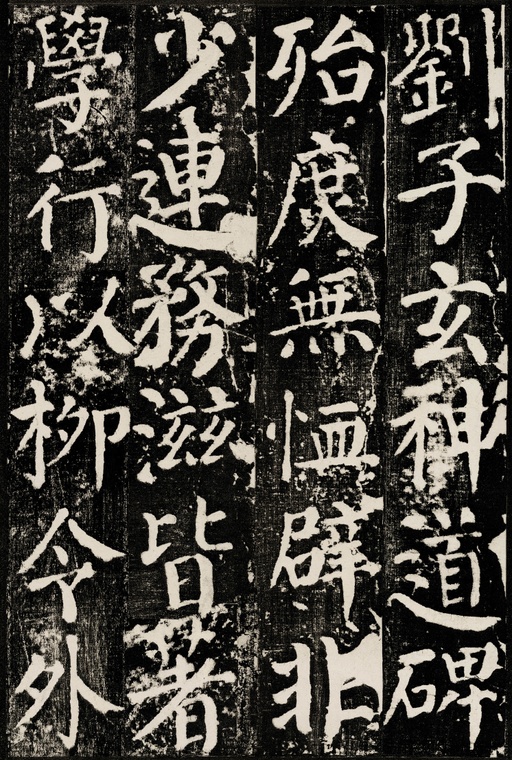 劉子玄神道碑
殆庶無恤辟非
少連務滋皆著
學行以柳令外